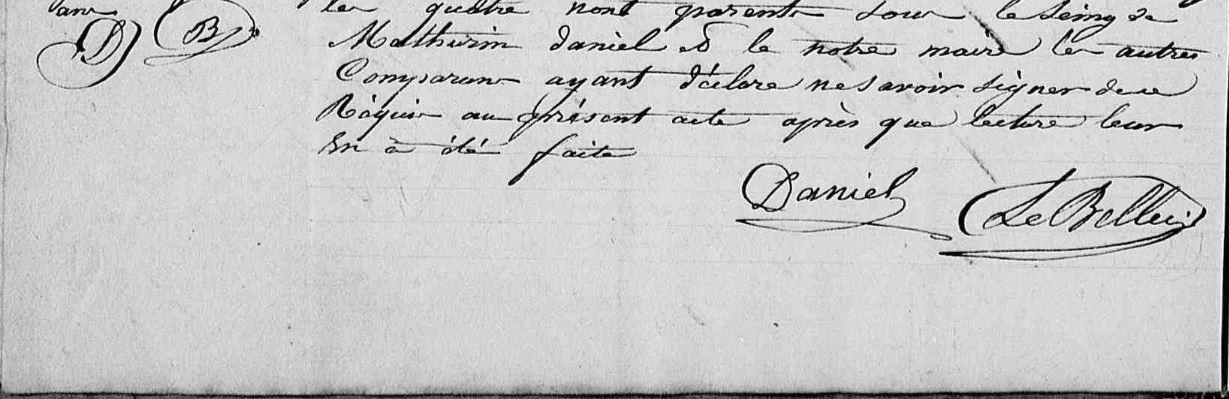 ans
D B
les quatre nont parents sous le seing de
Mathurin daniel & le notre maire les autres
Comparans ayant déclare ne savoir signer de ce
Réquis au présent acte après que lecture leur
En à été faite
Daniel Le Bellec